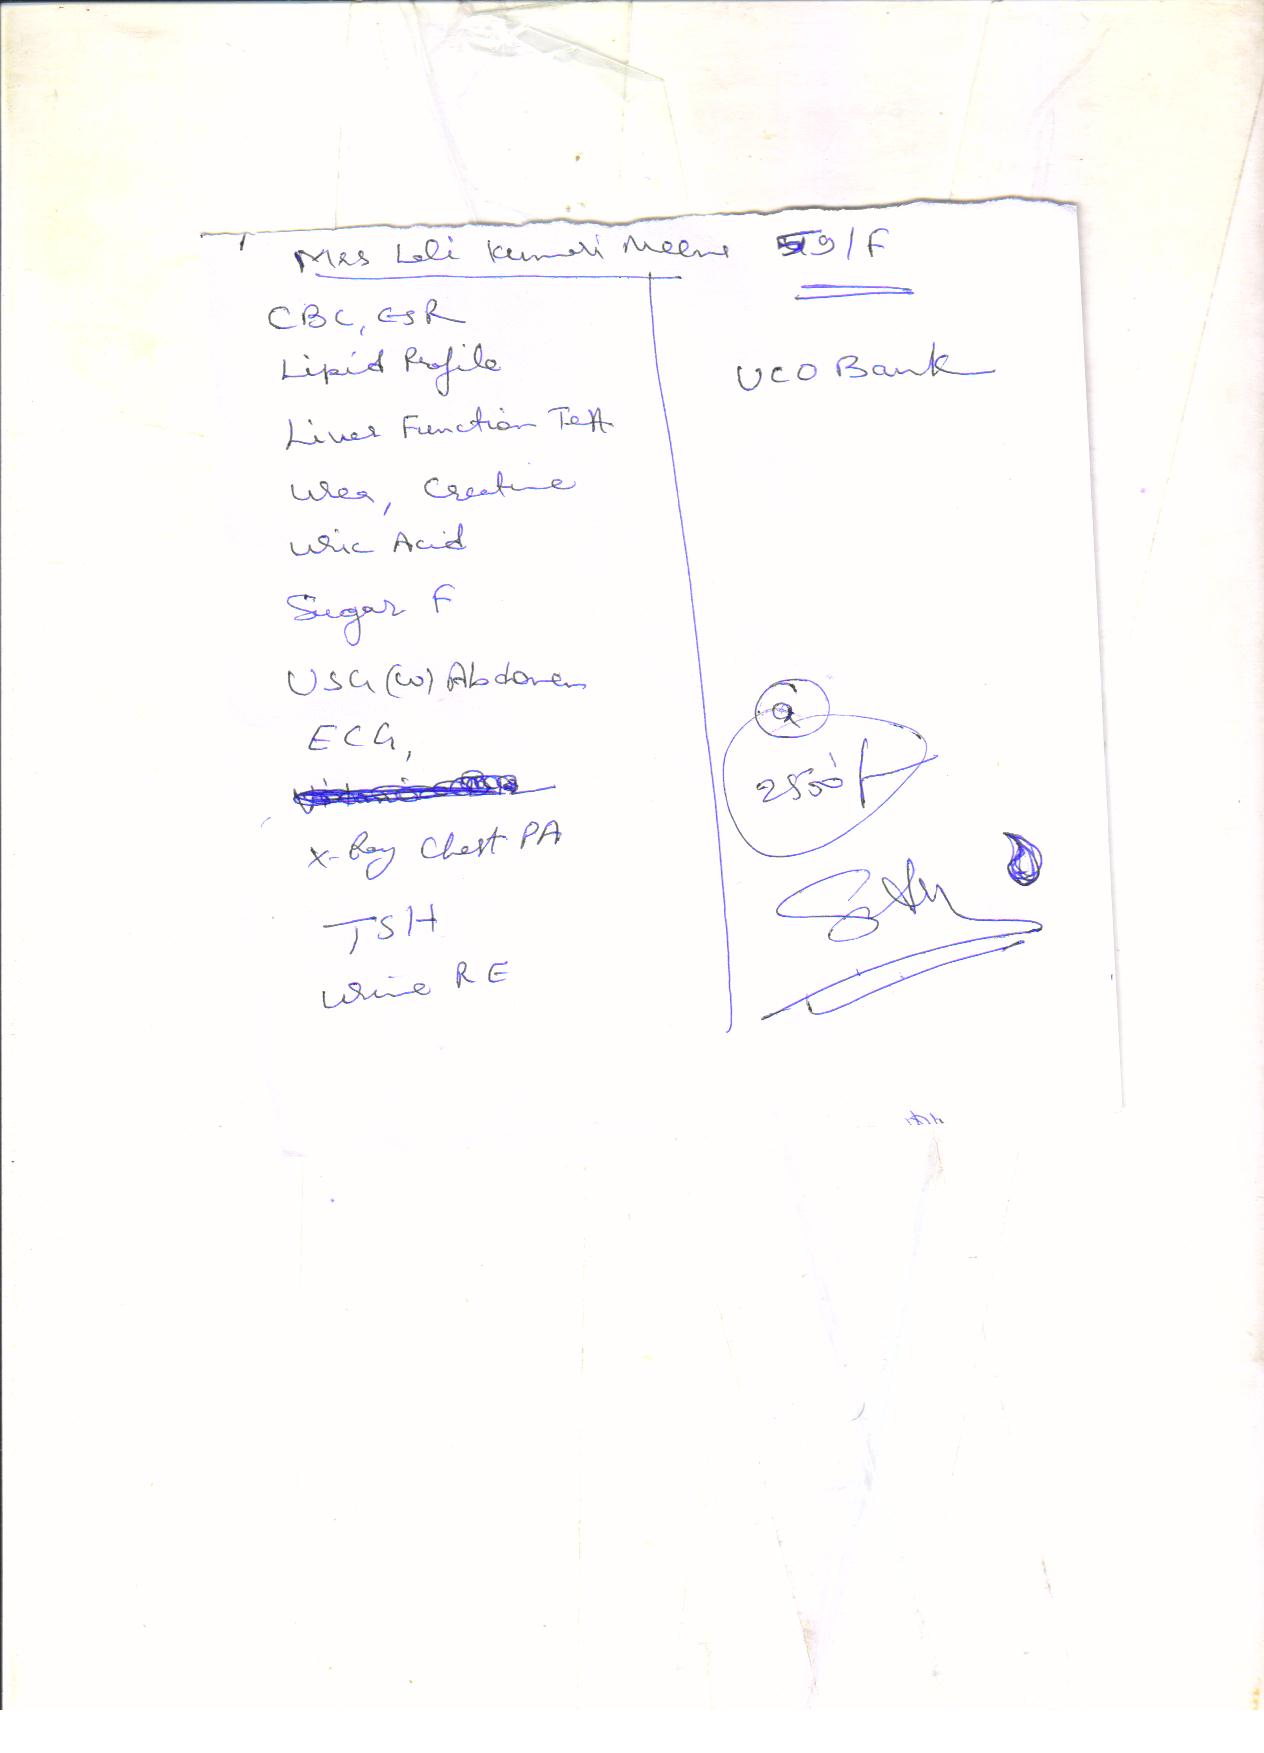 Mrs Lali Kumari Meena 59/F
CBC, ESR
Lipid Profile
Liver Function Test
Urea, Creatine
Uric Acid
Sugar F
USG (W) Abdomen
ECG,
X-Ray Chest PA
TSH
Urine RE
UCO Bank
@
2500/-